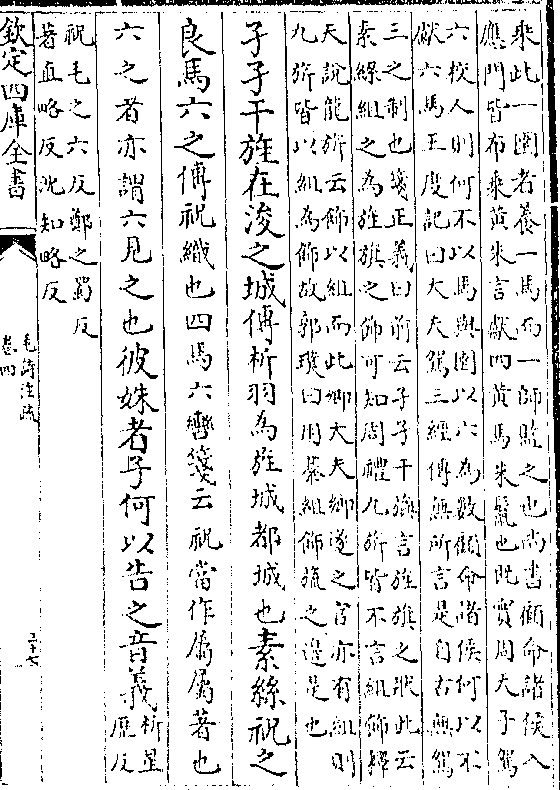 乘此一圉者養一馬而一師監之也尚書顧命諸侯入
應門皆布乘黃朱言獻四黃馬朱鬛也旣實周天子駕
六校人則何不以馬與圉以六為數顧命諸侯何以不
獻六馬王度記曰大夫駕三經傳無所言是自古無駕
三之制也箋正義曰前云孑孑干旟言旌旗之狀此云
素絲組之為旌旗之飾可知周禮九旂皆不言組飾釋
天說龍旂云飾以組而此鄉大夫鄉遂之官亦有組則
九旂皆以組為飾故郭璞曰用綦組飾旒之邊是也
孑孑干旌在浚之城傳析羽為旌城都城也素絲祝之
良馬六之傳祝織也四馬六轡箋云祝當作屬屬著也
六之者亦謂六見之也彼姝者子何以告之音義析星
歷反
祝毛之六反鄭之蜀反
著直略反沈知略反
欽定四庫全書
毛詩注疏
卷四
三十七